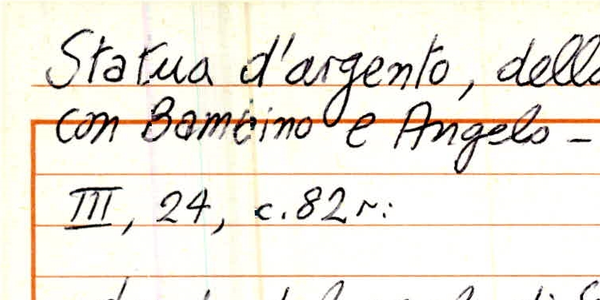 Statua d'argento, della
con Bambino e Angelo -
III, 24, c.82r: